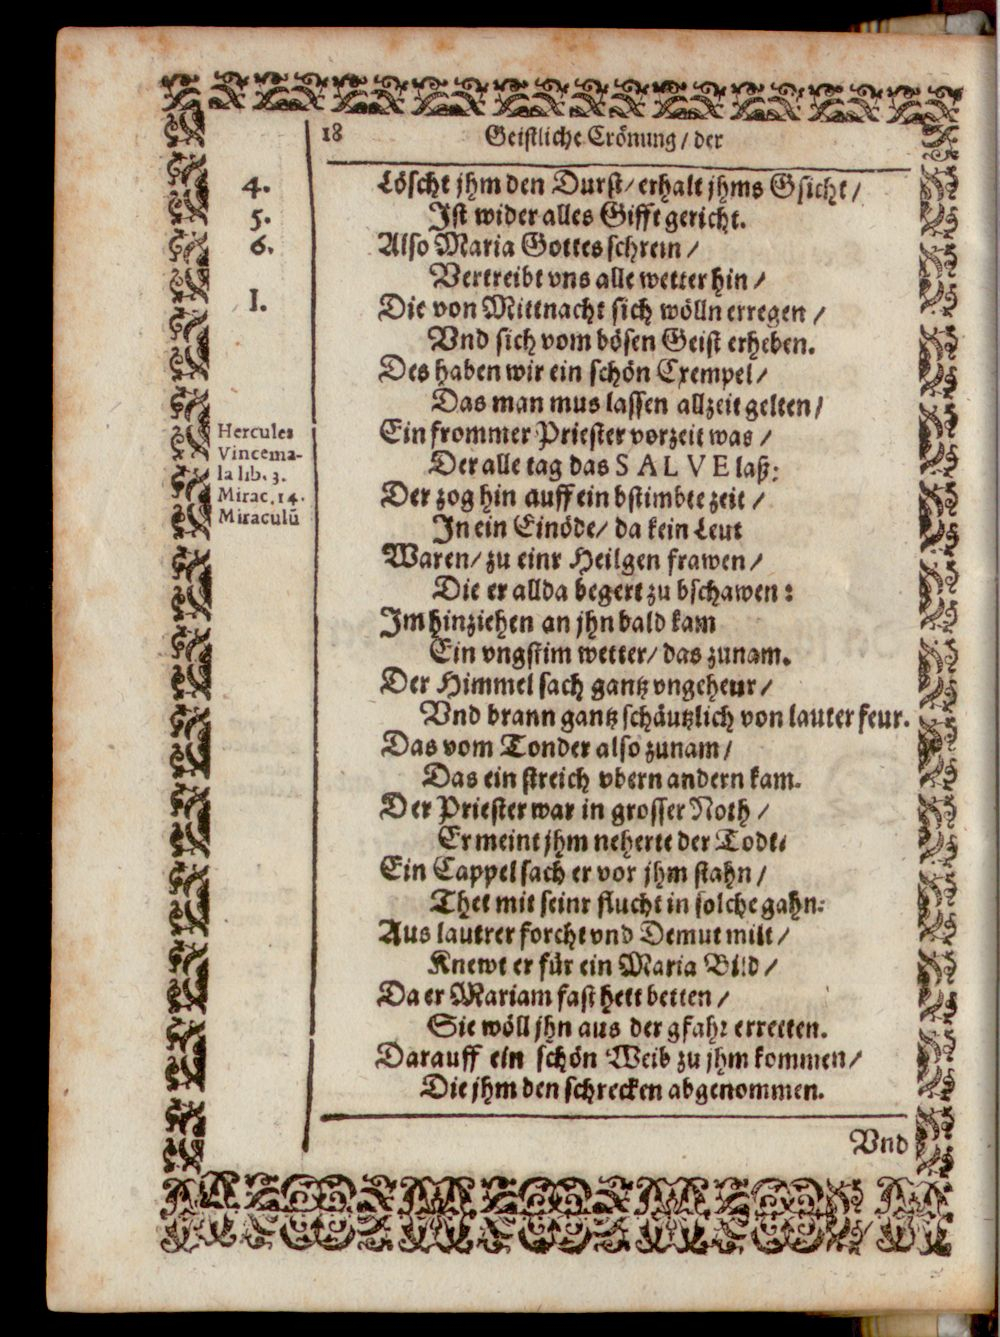 18 Geistliche Crönung / der
4. Löscht jhm den Durst / erhalt jhms Gsicht /
5. Ist wider alles Gifft gericht.
6. Also Maria Gottes schrein /
Vertreibt vns alle wetter hin /
I. Die von Mittnacht sich wölln erregen /
Vnd sich vom bösen Geist erheben.
Des haben wir ein schön Exempel /
Das man mus lassen allzeit gelten /
Hercules
Vincema-
la lib. 3.
Mirac. 14.
Miraculū
Ein frommer Priester vorzeit was /
Der alle tag das SALVE laß:
Der zog hin auff ein bstimbte zeit /
In ein Einöde / da kein Leut
Waren / zu einr Heilgen frawen /
Die er allda begert zu bschawen:
Im hinziehen an jhn bald kam
Ein vngstim wetter / das zunam.
Der Himmel sach gantz vngeheur /
Vnd brann gantz schäutzlich von lauter feur.
Das vom Tonder also zunam /
Das ein streich vbern andern kam.
Der Priester war in grosser Noth /
Er meint jhm neherte der Todt:
Ein Cappel sach er vor jhm stahn /
Thet mit seinr flucht in solche gahn:
Aus lautrer forcht vnd Demut milt /
Knewt er für ein Maria Bild /
Da er Mariam fast hett betten /
Sie wöll jhn aus der gfahr erretten.
Darauff ein schön Weib zu jhm kommen /
Die jhm den schrecken abgenommen.
Vnd